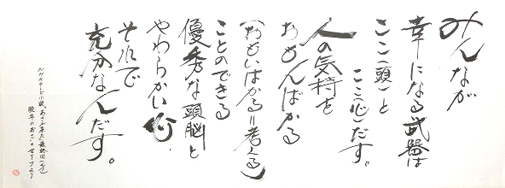 みんなが
幸になる武器は
ここ(頭)と
ここ(心)だす。
人の気持を
おもんばかる
(おもいはかる=考える)
ことのできる
優秀な頭脳と
やわらかい心。
それで
充分なんだす。